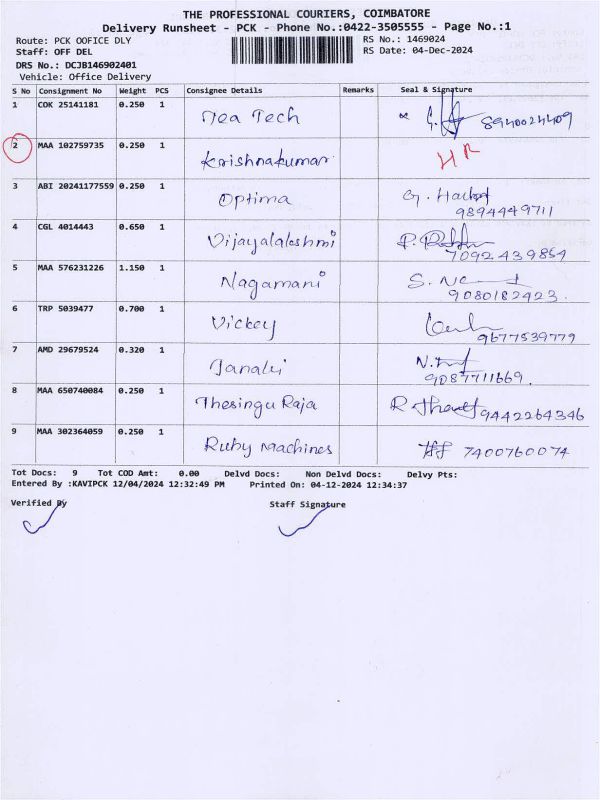 THE PROFESSIONAL COURIERS, COIMBATORE
Delivery Runsheet - PCK - Phone No.:0422-3505555 - Page No.:1
Route: PCK OOFICE DLY
RS No.: 1469024
Staff: OFF DEL
RS Date: 04-Dec-2024
DRS No.: DCJB146902401
Vehicle: Office Delivery
S No Consignment No Weight PCS Consignee Details Remarks Seal & Signature
1 COK 25141181 0.250 1 Tea Tech 8940024409
2 MAA 102759735 0.250 1 Krishnakumar HR
3 ABI 20241177559 0.250 1 Optima 9894449711
4 CGL 4014443 0.650 1 Vijayalaleshmi 7092439854
5 MAA 576231226 1.150 1 Nagamani 9080182423
6 TRP 5039477 0.700 1 Vickey 9677539779
7 AMD 29679524 0.320 1 Janaki 9087711669.
8 MAA 650740084 0.250 1 Thesingu Raja 9442264346
9 MAA 302364059 0.250 1 Ruby Machines 7400760074
Tot Docs: 9 Tot COD Amt: 0.00 Delvd Docs: Non Delvd Docs: Delvy Pts:
Entered By :KAVIPCK 12/04/2024 12:32:49 PM Printed On: 04-12-2024 12:34:37
Verified By Staff Signature